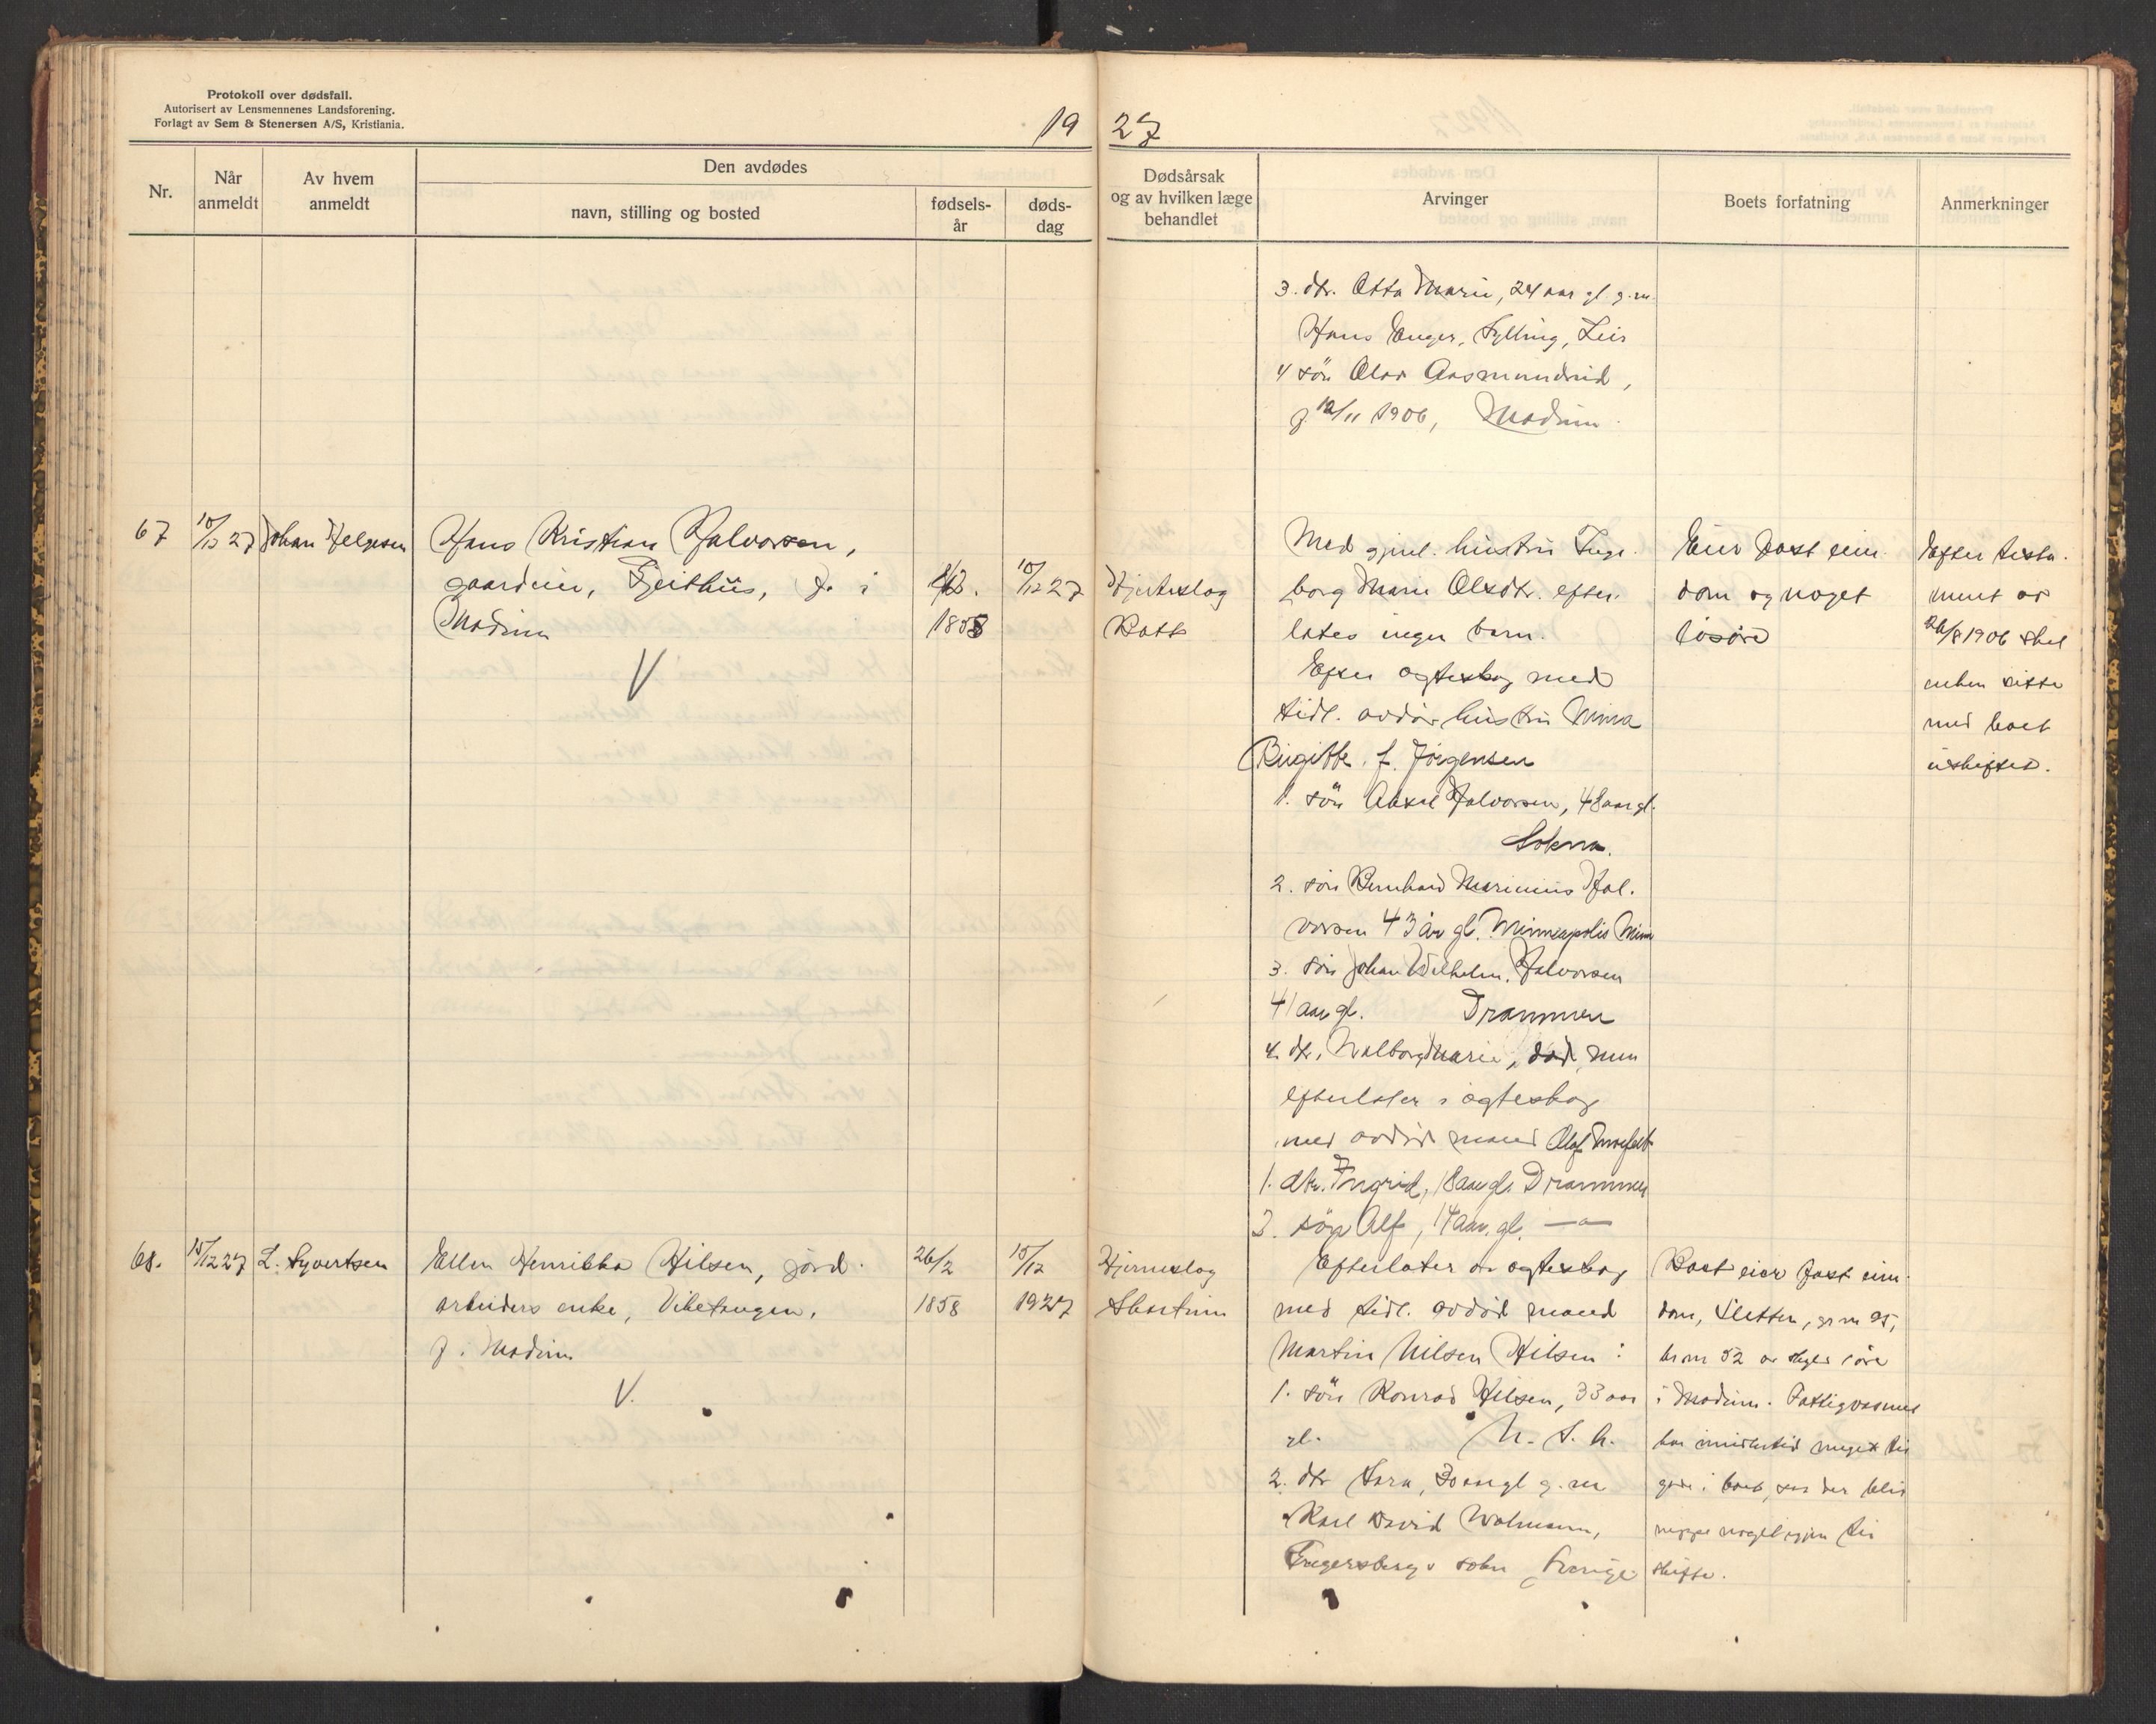 Protokoll over dødsfall.
Autorisert av Lensmennenes Landsforening.
Forlagt av Sem & Stenersen A/S, Kristiania.
19 27
Nr.
Når anmeldt
Av hvem anmeldt
Den avdødes
navn, stilling og bosted
fødsels-år
døds-dag
Dødsårsak og av hvilken læge behandlet
Arvinger
Boets forfatning
Anmerkninger
3. dtr. Otta Marie, 24 aar gl g.m.
Hans Enger, Sylling, Lier
4 søn Olav Aasmundrud,
f. 12/11 1906, Modum
67
10/12 27
Johan Helgesen
Hans Kristian Halvorsen,
gaardeier, Geithus, f. i
Modum
V
1858
10/12 27
Hjerteslag
Bott
Med gjenl. hustru Inge-
borg Marie Olsdtr. efter-
lates ingen barn.
Efter ægteskap med
tidl. avdød hustru Mina
Birgitte f. Jørgensen
1. søn Aksel Halvorsen, 48 aar gl.
Sokna.
2. søn Bernhard Marinius Hal-
vorsen 43 år gl. Minneapolis Minn
3. søn Johan Wilhelm Halvorsen
41 aar gl. Drammen
4. dtr. Valborg Marie, død, men
efterlater i ægteskap
med avdød mand Olaf
1. dtr. Ingrid, 18 aar gl. Drammen
2. søn Alf, 14 aar gl. —"—
Eier fast eien-
dom og noget
løsøre
Efter testa-
ment av
26/8 1906 skal
enken sitte
med boet
uskiftet.
68.
15/12 27
L. Syvertsen
Ellen Henrikka Hilsen, jord-
arbeiders enke, Viketangen,
f. i Modum
V.
26/2
1858
15/12
1927
Hjerneslag
Skartum
Efterlater av ægteskap
med tidl. avdød mand
Martin Nilsen Hilsen:
1. søn Konrad Hilsen, 33 aar
gl. U. S. A.
2. dtr Sara, 30 aar gl g. m
Karl David Wolmann,
Fregersbergs sokn, Sverige
Boet eier fast eien-
dom, Sletten, gr nr 95,
br nr 52 av skyld øre
i Modum. Fattigvæsenet
har imidlertid meget til
gode i boet, saa der blir
neppe noget igjen til
skifte.